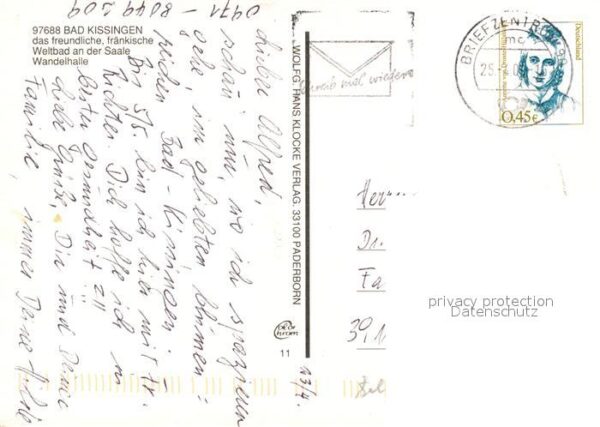 97688 BAD KISSINGEN
das freundliche, fränkische
Weltbad an der Saale
Wandelhalle
0971 – 8049 209
Lieber Alfred,
schau nur, wo ich spazieren
gehe, im geliebten blumen-
reichen Bad-Kissingen.
Bis 5/5 bin ich hier mit Fr.
Richter. Dich hoffe ich in
bester Gesundheit!!
Liebe Grüße, Dir und Deine
Familie, immer Deine
WOLFG. HANS KLOCKE VERLAG. 33100 PADERBORN
11
17/4.
Schreib mal wieder
BRIEFZENTRUM
mc
Deutschland
0,45€
Herrn
Dr.
Fa
privacy protection
Datenschutz